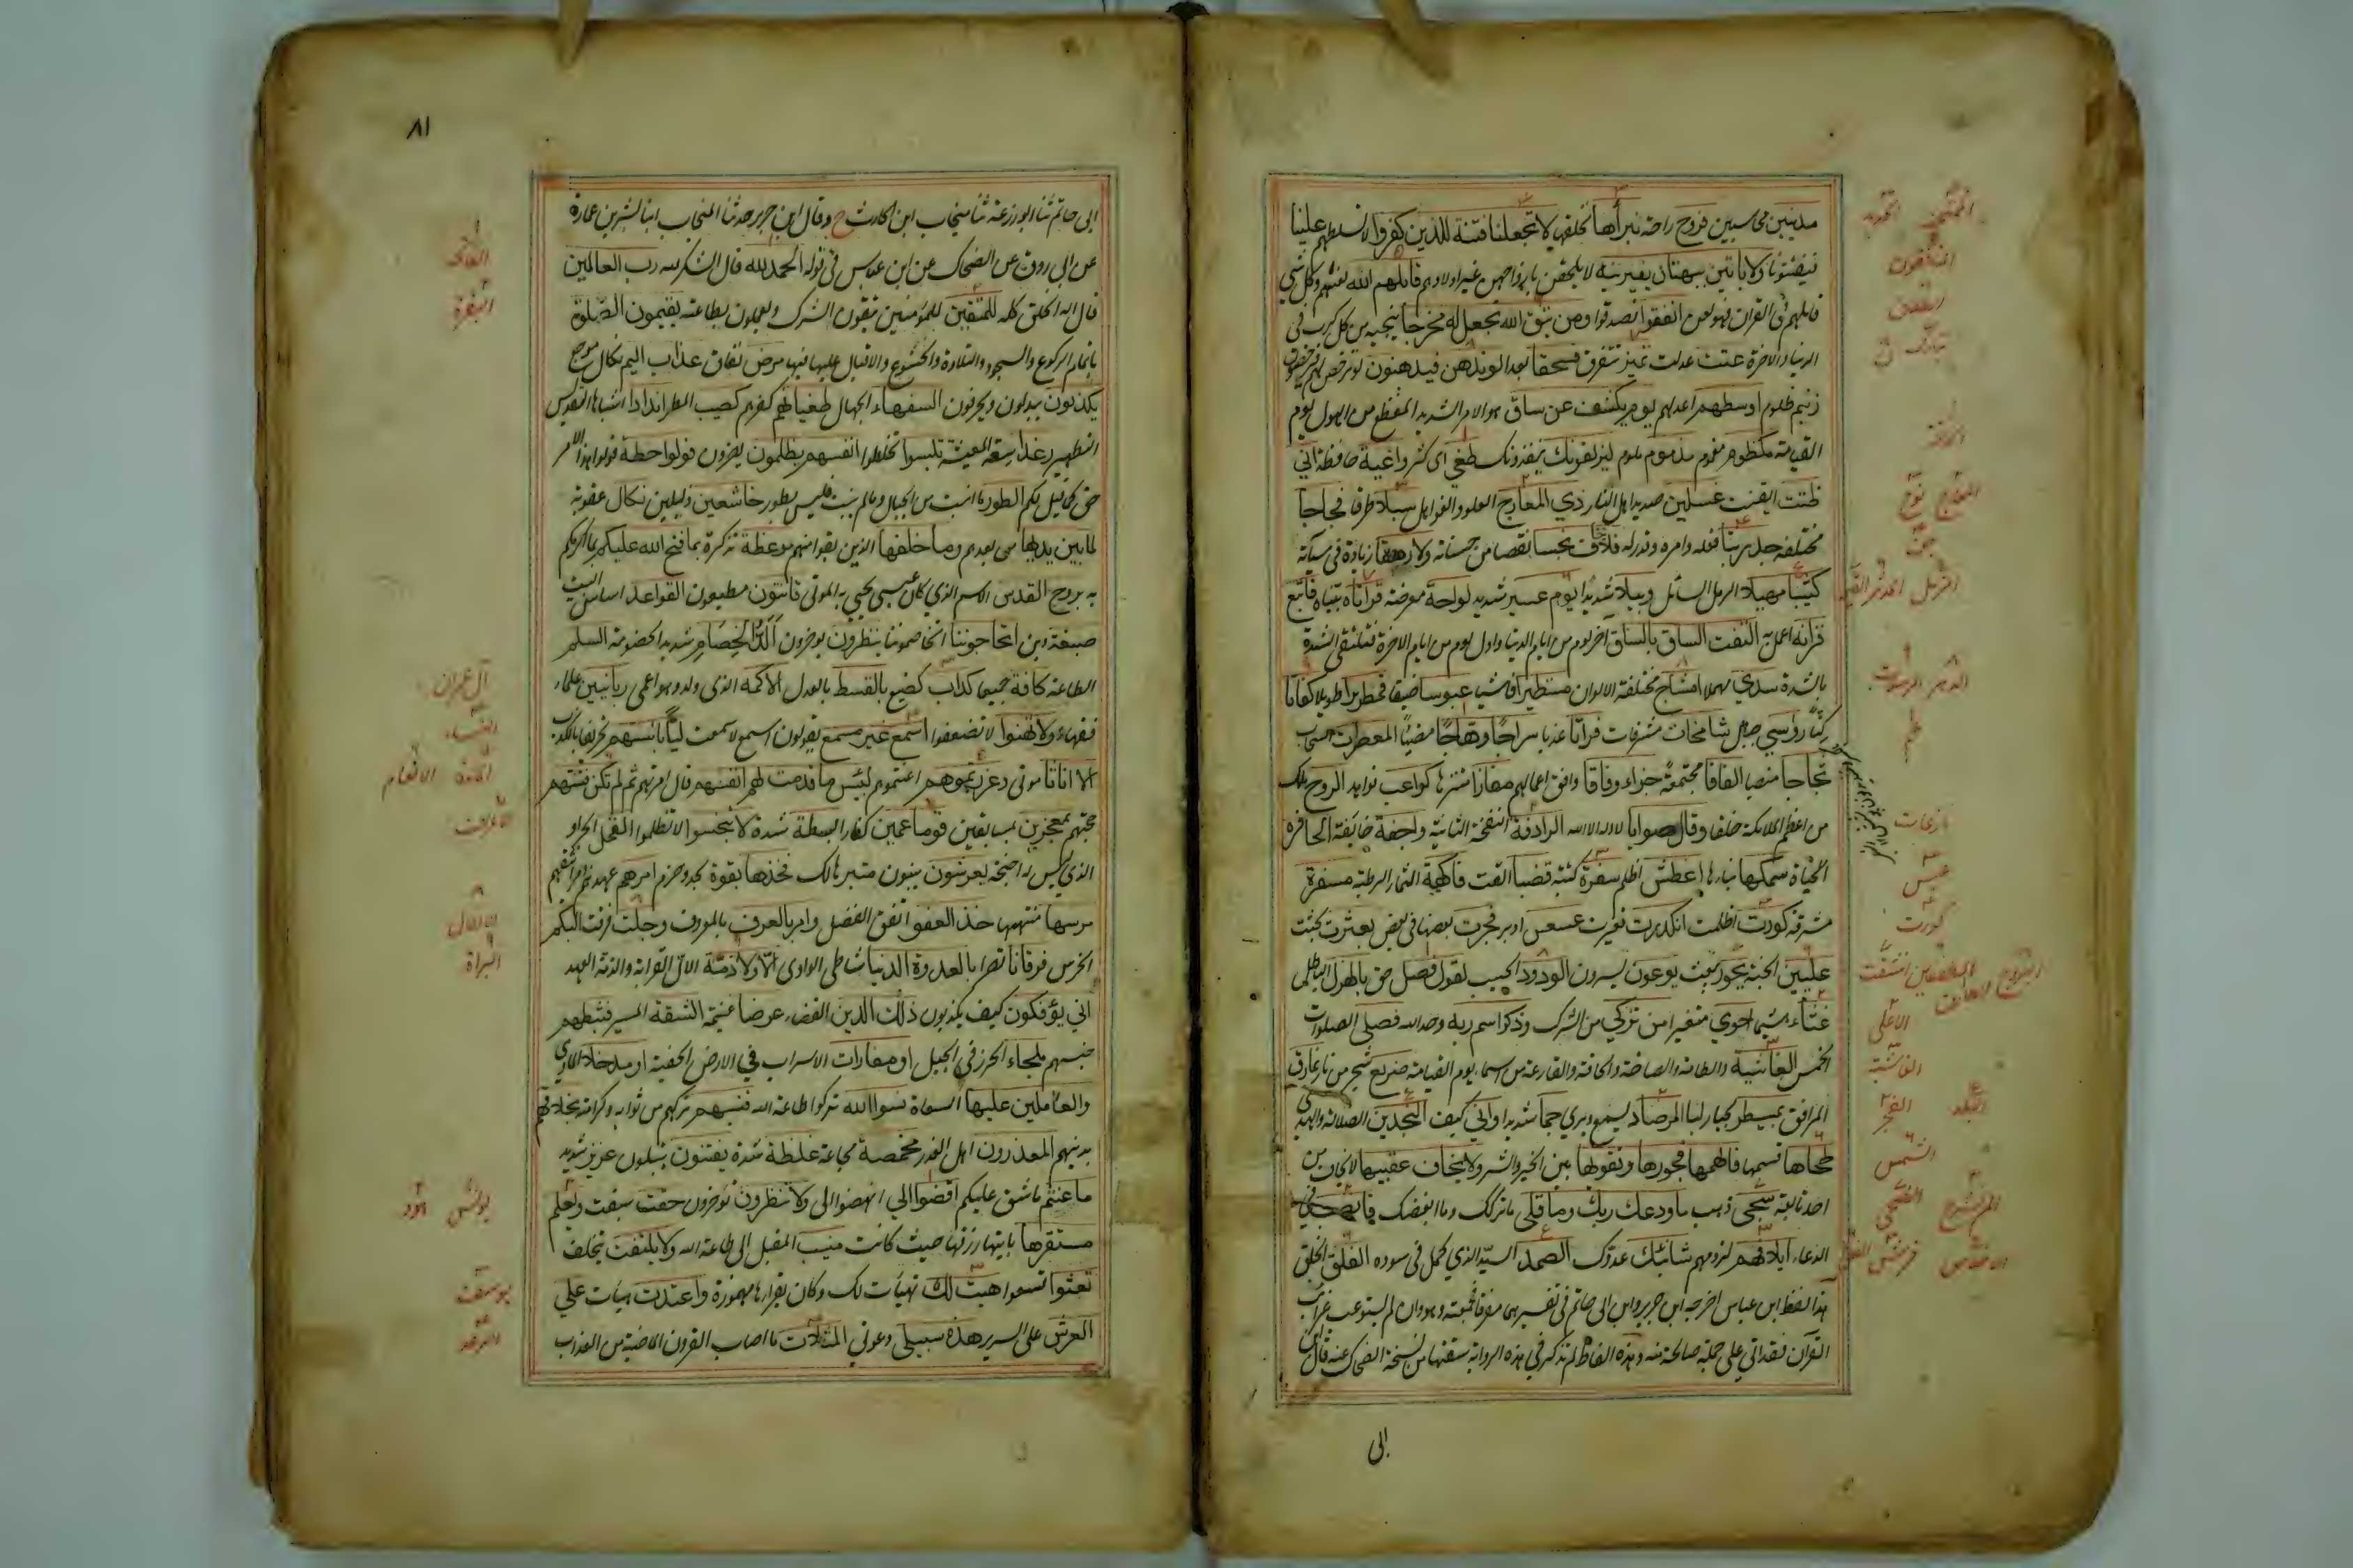 مدينين محاسبين فروح راحة نبرأها نخلقها لا تجعلنا فتنة للذين كفروا لا تسلطهم علينا
فيفتنونا ولا يأتين ببهتان يفترينه لا يلحقن بازواجهن غير اولادهم قاتلهم الله لعنهم وكل شي
قاتلهم في القران فهو لعن انفقوا تصدقوا ومن يتق الله يجعل له مخرجا ينجيه من كل كرب في
الدنيا والاخرة عتت عدلت تميز تتفرق فسحقا بعدا لو تدهن فيدهنون لو ترخص لهم فيرخصون
زنيم ظلوم اوسطهم اعدلهم يوم يكشف عن ساق هو الامر الشديد المفظع من الهول يوم
القيامة مكظوم مغموم مذموم ملوم ليزلقونك ينفذونك طغي اي كثر واعية حافظة اني
ظننت ايقنت غسلين صديد اهل النار ذي المعارج العلو والفواضل سبلا طرقا فجاجا
مختلفة جد ربنا فعله وامره وقدرته فلا يخاف بخسا نقصا من حسناته ولا رهقا زيادة في سيآته
كثيبا مهيلا الرمل السائل وبيلا شديدا يوم عسير شديد لواحة معرضة قرأناه بيناه فاتبع
قرآنه اعمل به التفت الساق بالساق آخر يوم من ايام الدنيا واول يوم من ايام الاخرة فتلتقي الشدة
بالشدة سدي هملا امشاج مختلفة الالوان مستطيرا فاشيا عبوسا ضيقا قمطريرا طويلا كفاتا
كنا رواسي جبال شامخات مشرفات فراتا عذبا سراجا وهاجا مضيئا المعصرات السحاب
ثجاجا منصبا الفافا مجتمعة جزاء وفاقا وافق اعمالهم مفازا متنزها كواعب نواهد الروح ملك
من اعظم الملائكة خلقا وقال صوابا لا اله الا الله الرادفة النفخة الثانية واجفة خايفة الحافرة
الحياة سمكها بناءها اغطش اظلم سفرة كتبة قضبا القت فاكهة الثمار الرطبة مسفرة
مشرقة كورت اظلمت انكدرت تغيرت عسعس ادبر فجرت بعضها في بعض بعثرت بحثت
عليين الجنة يحور يبعث يوعون يسرون الودود الحبيب لقول فصل حق بالهزل الباطل
غثاء هشيما احوي متغيرا من تزكي من الشرك وذكر اسم ربه وحد الله فصلي الصلوات
الخمس الغاشية والطامة والصاخة والحاقة والقارعة من اسماء يوم القيامة ضريع شجر من نار نمارق
المرافق بمسيطر بجبار لبا المرصاد يسمع ويري جما شديدا واني كيف النجدين الضلالة والهدي
طحاها قسمها فالهمها فجورها وتقوها بين الخير والشر ولا يخاف عقبيها لا يخاف من
احد تابعة سجي ذهب ما ودعك ربك وما قلي ما تركك وما ابغضك فانصب في
الدعاء ايلافهم لزومهم شانئك عدوك الصمد السيد الذي كمل في سودده الفلق الخلق
هذا لفظ ابن عباس اخرجه ابن جرير وابن ابي حاتم في تفسيرهما مفرقا فجمعته وهو وان لم يستوعب غرائب
القرآن فقد اتي علي جملة صالحة منه وهذه الفاظ لم تذكر في هذه الرواية سقتها من نسخة الضحاك عنه قال ابن
ابي
الممتحنة
المنافقون
الطلاق
تبارك ن
الحاقة
المعارج نوح
جن
المزمل المدثر القيمة
الدهر المرسلات
نازعات
عبس
كورت
المطففين انشقت
البروج الطارق
الاعلى
الغاشية
الفجر البلد
الشمس
الضحى الم نشرح
قريش الاخلاص
٨١
ابي حاتم ثنا ابو زرعة ثنا منجاب ابن الحارث ح وقال ابن جرير حدثنا المنجاب انبا بشر بن عمارة
عن ابي روق عن الضحاك عن ابن عباس في قوله الحمد لله قال الشكر لله رب العالمين
قال له الخلق كله للمتقين للمؤمنين يتقون الشرك ويعملون بطاعته يقيمون الصلوة
باتمام الركوع والسجود والتلاوة والخشوع والاقبال عليها فيها مرض نفاق عذاب اليم نكال موجع
يكذبون يبدلون ويحرفون السفهاء الجهال طغيانهم كفرهم كصيب المطر اندادا اشباها التقديس
التطهير رغدا سعة المعيشة تلبسوا تخلطوا انفسهم يظلمون يضرون قولوا حطة قولوا هذا الامر
حق كما قيل لكم الطور ما انبت من الجبال وما لم ينبت فليس بطور خاسئين ذليلين نكال عقوبة
لما بين يديها من بعدهم وما خلفها الذين بقوا منهم موعظة تذكرة بما فتح الله عليكم بما اكرمكم
به بروح القدس الاسم الذي كان عيسي يحيي به الموتي قانتون مطيعون القواعد اساس البيت
صبغة دين اتحاجوننا اتخاصموننا ينظرون يوخرون الد الخصام شديد الخصومة السلم
الطاعة كافة جميعا كدأب كصنيع بالقسط بالعدل الاكمه الذي ولد وهو اعمي ربانيين علماء
فقهاء ولا تهنوا لا تضعفوا اسمع غير مسمع يقولون اسمع لا سمعت ليا بالسنتهم تحريفا بالكذب
الا اناثا موتي وعزرتموهم اعنتموهم لبئس ما قدمت لهم انفسهم قال امرتهم ثم لم تكن فتنتهم
حجتهم بمعجزين بمسابقين قوما عمين كفارا بسطة شدة لا تبخسوا لا تظلموا القمل الجراد
الذي ليس له اجنحة يعرشون يبنون متبر هالك فخذها بقوة بجد وحزم اصرهم عهدهم ومواثيقهم
مرسها منتهيها خذ العفو انفق الفضل وامر بالعرف بالمعروف وجلت فرقت البكم
الخرس فرقانا نصرا بالعدوة الدنيا شاطي الوادي الا ولا ذمة الال القرابة والذمة العهد
اني يؤفكون كيف يكذبون ذلك الدين القضاء عرضا غنيمة الشقة المسير فثبطهم
حبسهم ملجاء الحرز في الجبل او مغارات الاسراب في الارض الخفية او مدخلا الماوي
والعاملين عليها السعاة نسوا الله تركوا طاعة الله فنسيهم تركهم من ثوابه وكرامته بخلاقهم
بدينهم المعذرون اهل العذر مخمصة مجاعة غلظة شدة يفتنون يبتلون عزيز شديد
ما عنتم ما شق عليكم اقضوا الي انهضوا الي ولا تنظرون توخرون حقت سبقت ويعلم
مستقرها ياتيها رزقها حيث كانت منيب المقبل الي طاعة الله ولا يلتفت يتخلف
تعثوا تسعوا هيت لك تهيأت لك وكان يقرأها مهموزة واعتدت هيأت علي
العرش على السرير هذه سبيلي دعوتي المثلات ما اصاب القرون الماضية من العذاب
الفاتحة
البقرة
آل عمران
النساء
المائدة الانعام
الاعراف
الانفال
البراة
يونس هود
يوسف
الرعد